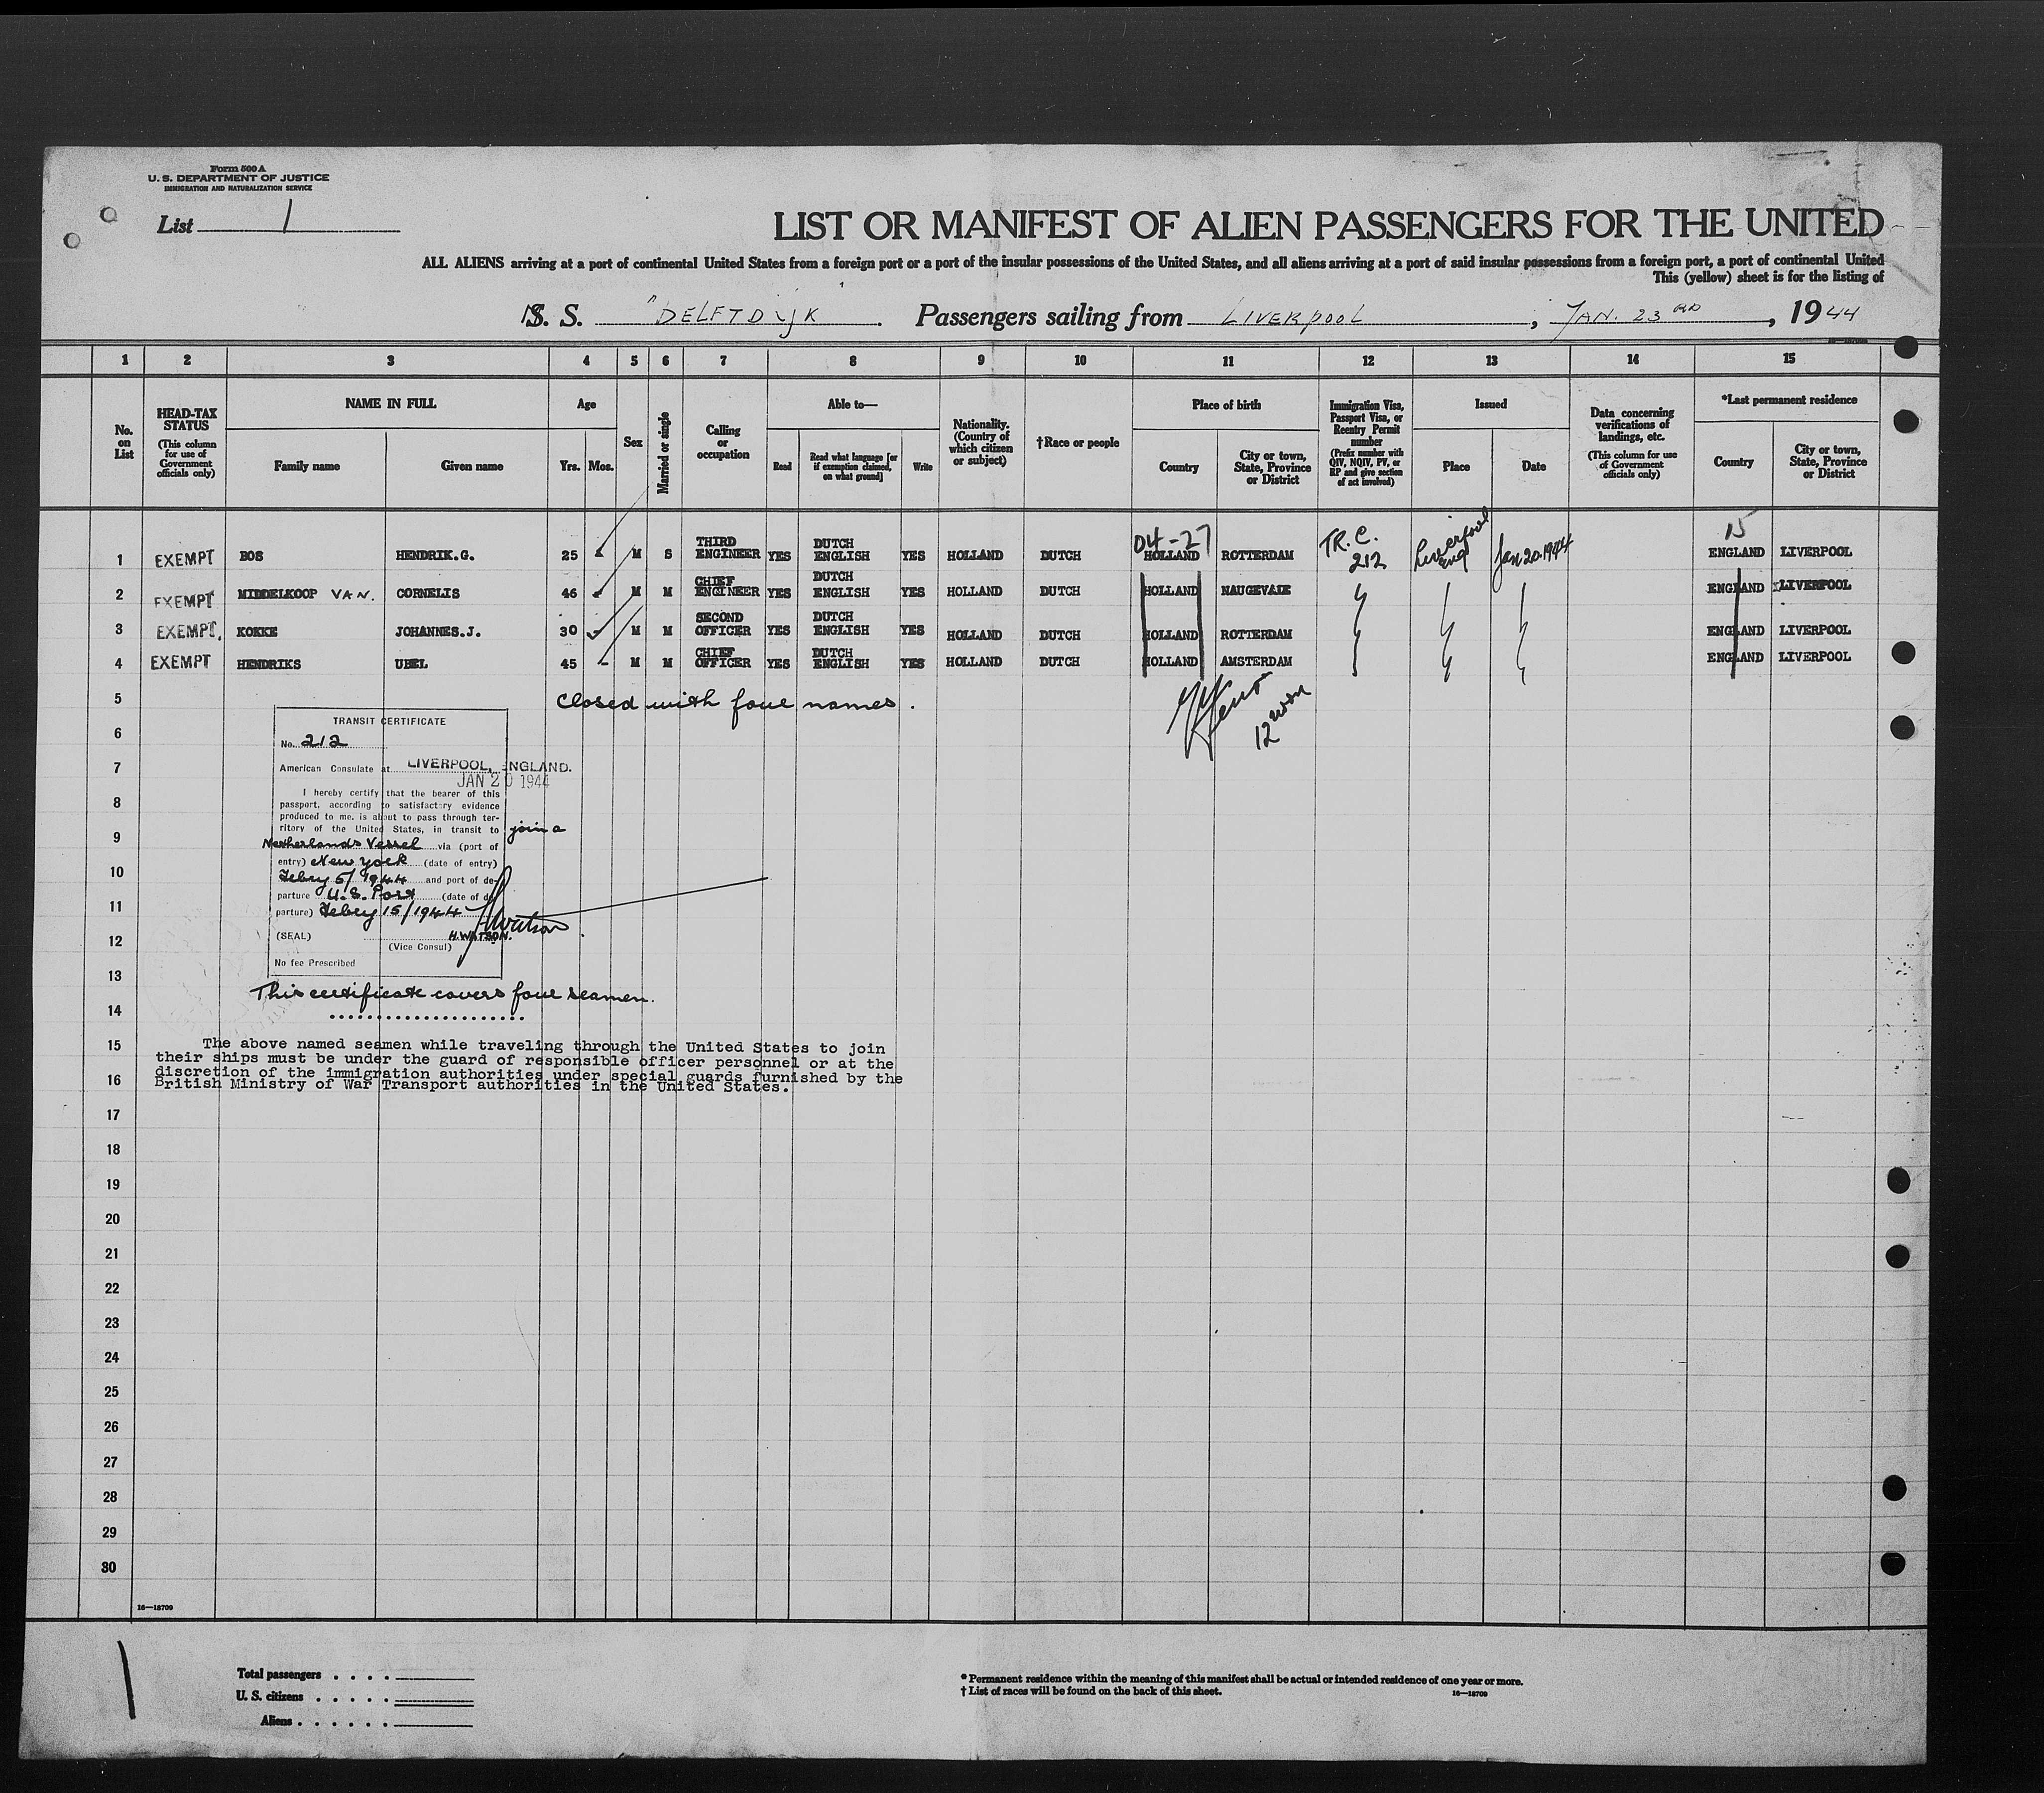 Form 500 A
U. S. DEPARTMENT OF JUSTICE
IMMIGRATION AND NATURALIZATION SERVICE
List 1
LIST OR MANIFEST OF ALIEN PASSENGERS FOR THE UNITED
ALL ALIENS arriving at a port of continental United States from a foreign port or a port of the insular possessions of the United States, and all aliens arriving at a port of said insular possessions from a foreign port, a port of continental United
This (yellow) sheet is for the listing of
S. S. "DELFTDIJK" Passengers sailing from LIVERPOOL, JAN. 23 RD, 1944
16—18709
1 2 3 4 5 6 7 8 9 10 11 12 13 14 15
No. on List
HEAD-TAX STATUS
(This column for use of Government officials only)
NAME IN FULL
Family name
Given name
Age
Yrs. Mos.
Sex
Married or single
Calling or occupation
Able to—
Read
Read what language [or if exemption claimed, on what ground]
Write
Nationality. (Country of which citizen or subject)
†Race or people
Place of birth
Country
City or town, State, Province or District
Immigration Visa, Passport Visa, or Reentry Permit number
(Prefix number with QIV, NQIV, PV, or RP and give section of act involved)
Issued
Place
Date
Data concerning verifications of landings, etc.
(This column for use of Government officials only)
*Last permanent residence
Country
City or town, State, Province or District
04-27
15
1 EXEMPT BOS HENDRIK.G. 25 M S THIRD ENGINEER YES DUTCH ENGLISH YES HOLLAND DUTCH HOLLAND ROTTERDAM TR.C. 212 Liverpool Eng Jan 20.1944 ENGLAND LIVERPOOL
2 EXEMPT MIDDELKOOP VAN. CORNELIS 46 M M CHIEF ENGINEER YES DUTCH ENGLISH YES HOLLAND DUTCH HOLLAND NAUGEVAIE ENGLAND LIVERPOOL
3 EXEMPT. KOKKE JOHANNES.J. 30 M M SECOND OFFICER YES DUTCH ENGLISH YES HOLLAND DUTCH HOLLAND ROTTERDAM ENGLAND LIVERPOOL
4 EXEMPT HENDRIKS UBEL 45 M M CHIEF OFFICER YES DUTCH ENGLISH YES HOLLAND DUTCH HOLLAND AMSTERDAM ENGLAND LIVERPOOL
5 Closed with four names.
6
7
8
9
10
11
12
13
14
15
16
17
18
19
20
21
22
23
24
25
26
27
28
29
30
12
TRANSIT CERTIFICATE
No. 212
American Consulate at LIVERPOOL, ENGLAND.
JAN 20 1944
I hereby certify that the bearer of this
passport, according to satisfactory evidence
produced to me. is about to pass through ter-
ritory of the United States, in transit to join a
Netherlands Vessel via (port of
entry) New York (date of entry)
Febry 5/1944 and port of de-
parture U.S. Port (date of de
parture) Febry 15/1944
HWatson
(SEAL) H.WATSON.
(Vice Consul)
No fee Prescribed
This certificate covers four seamen.
The above named seamen while traveling through the United States to join
their ships must be under the guard of responsible officer personnel or at the
discretion of the immigration authorities under special guards furnished by the
British Ministry of War Transport authorities in the United States.
16—18709
1
Total passengers
U. S. citizens
Aliens
* Permanent residence within the meaning of this manifest shall be actual or intended residence of one year or more.
† List of races will be found on the back of this sheet.
16—18709